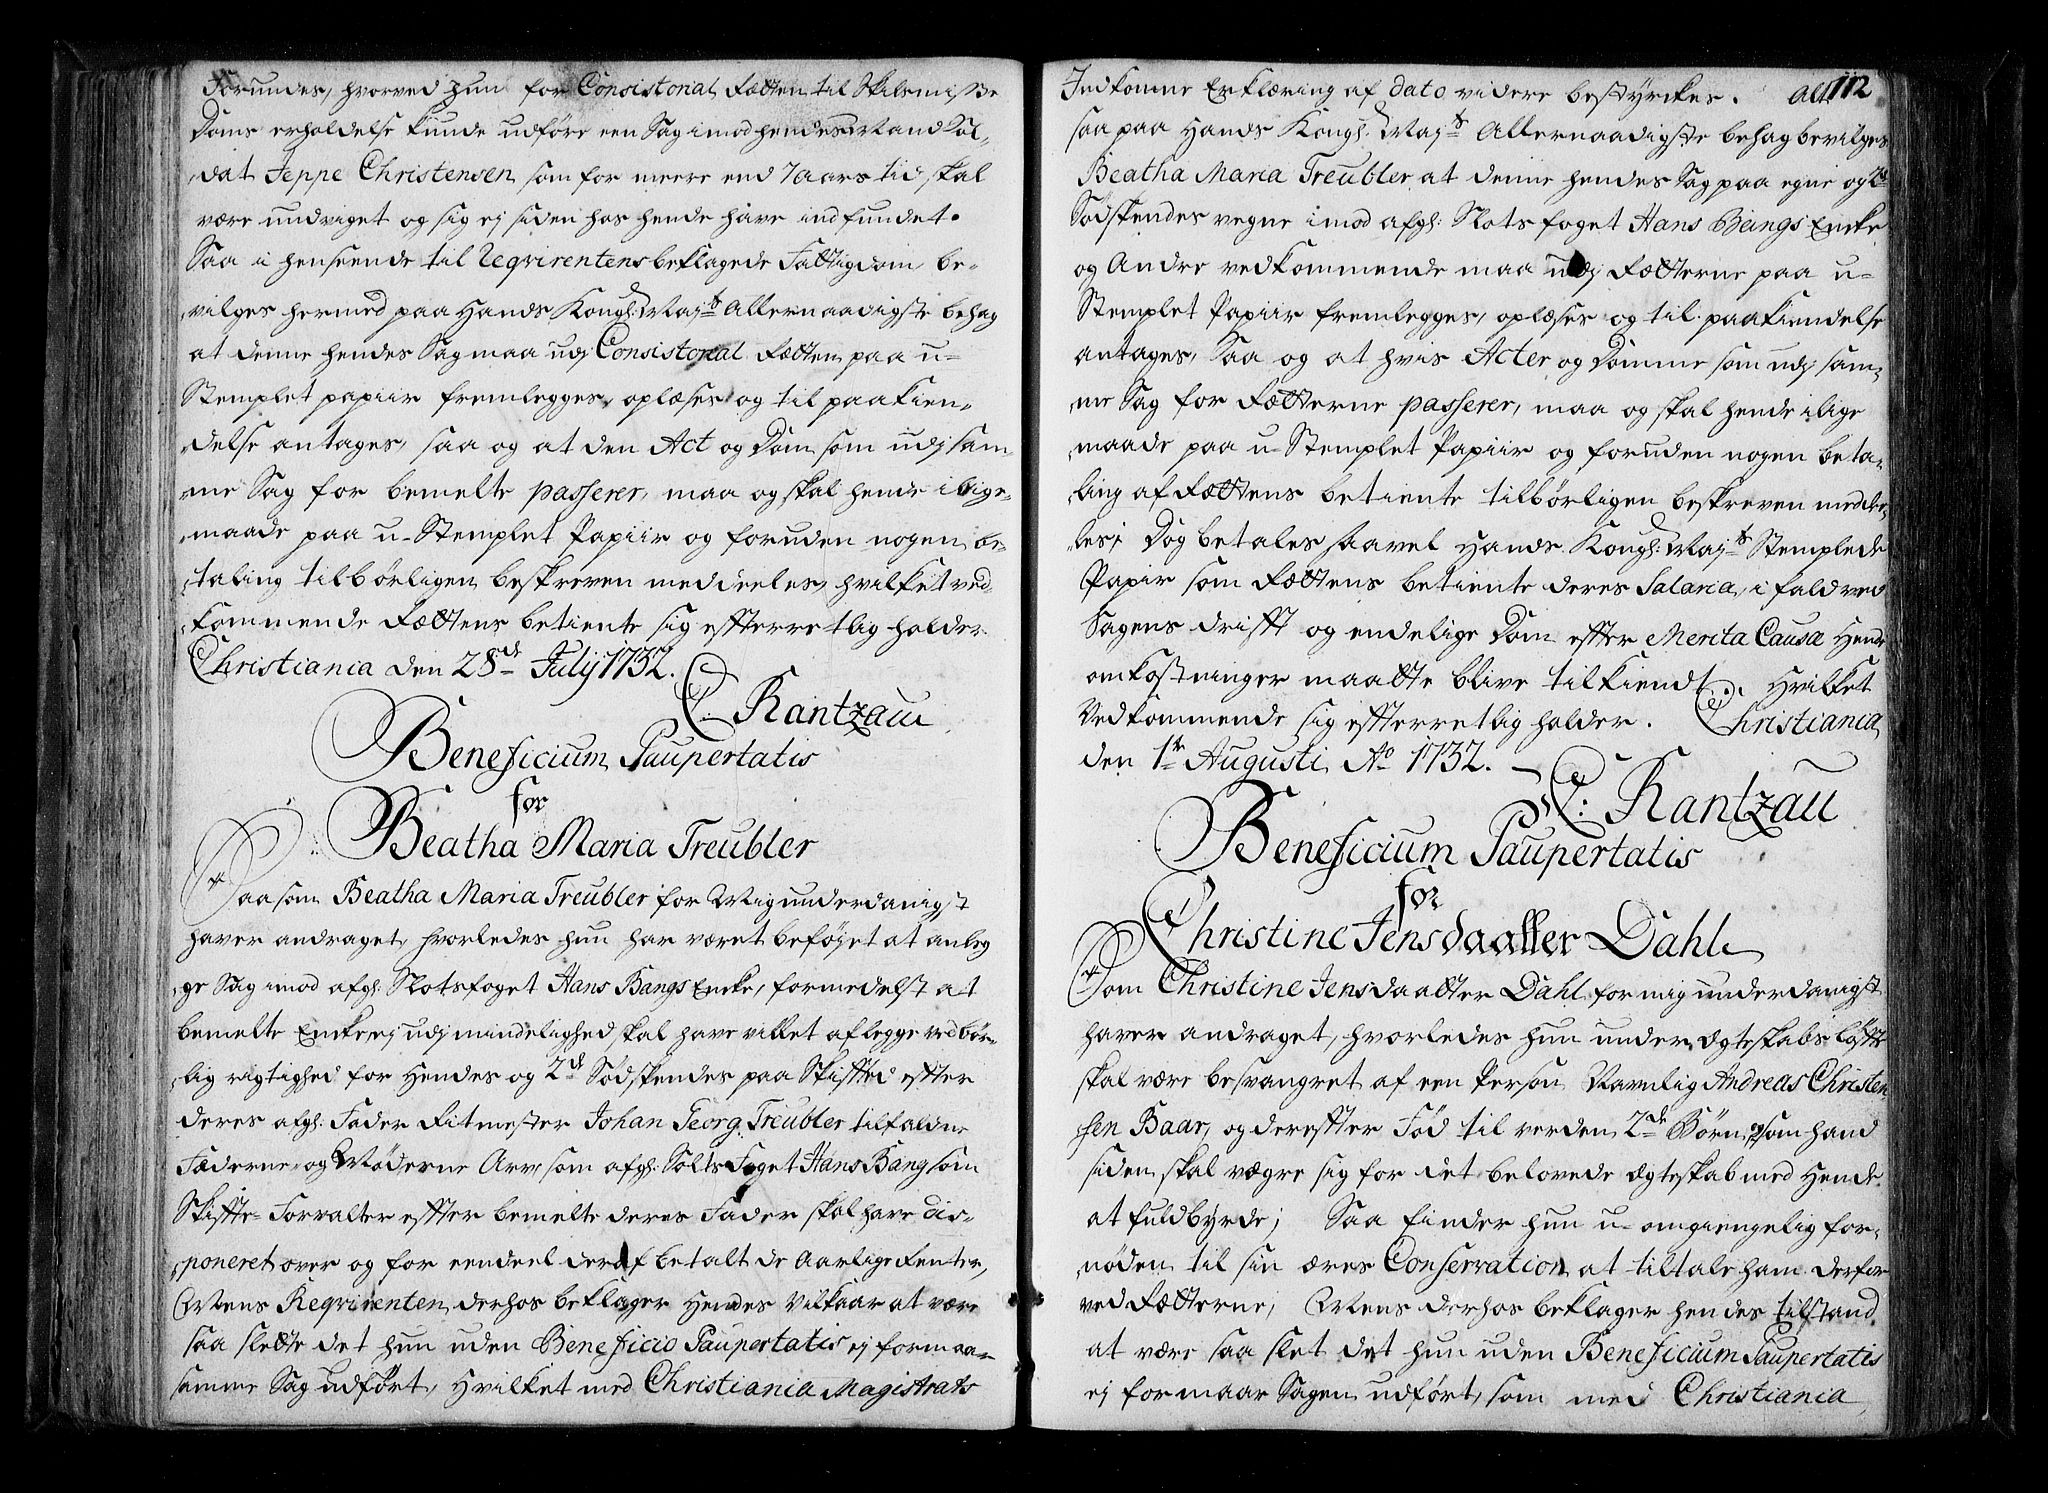 Forundes, hvorved hun for Consistorial Retten til Skilsmisse
Doms erholdelse kunde udføre een Sag imod hendes Mand Sol-
dat Jeppe Christensen som for meere end 7 aars tid skal
være undviget og sig ej siden hos hende have indfundet.
Saa i henseende til Reqvirentens beklagede Fattigdom, be-
vilges hermed paa Hands Kongl: Maj:ts Allernaadigste behag
at denne hendes Sag maa udj Consistorial Retten paa u-
Stemplet papiir fremlegges, oplæses og til paakien-
delse antages, saa og at den Act og Dom, som udj sam-
me Sag for bemelte passerer, maa og skal hende i lige-
maade paa u-Stemplet Papiir og foruden nogen be-
taling tilbørligen beskreven meddeeles, hvilket ved-
kommende Rettens betiente sig effterretlig holder.
Christiania den 28de July 1732.
C. Rantzau
Beneficium Paupertatis
for
Beatha Maria Treubler
Saasom Beatha Maria Treubler for Mig underdanigst
haver andraget, hvorledes hun har været beføjet at anleg
ge Sag imod afgl: Slotsfoget Hans Bangs Encke, formedelst at
bemelte Encke, ej udj mindelighed skal have villet aflegge vedbør-
lig rigtighed for Hendes og 2de Sødskendes paa Skifftet effter
deres afgl: Fader Ritmester Johan Georg Treubler tilfaldne
Fæderne og Møderne Arv, som afgl: Solts Foget Hans Bang som
Skiffte-Forvalter effter bemelte deres Fader skal have dis-
poneret over og for eendeel deraf betalt de Aarlige Renter,
Mens Reqvirenten derhos beklager Hendes Vilkaar at være
saa slette det hun uden Beneficio Paupertatis ej formaa-
samme Sag udført, Hvilket med Christiania Magistrats
112
Indkomne Erklæring af dato videre bestyrckes. Alt
saa paa Hands Kongl: Maj:ts Allernaadigste behag bevilges
Beatha Maria Treubler at denne hendes Sag paa egne og 2de
Sødskendes vegne imod afgl: Slots foget Hans Bangs Encke
og Andre vedkommende maa udj Retterne paa u-
Stemplet Papiir fremlegges, oplæses og til paakiendelse
antages, Saa og at hvis Acter og Domme som udj sam-
me Sag for Retterne passerer, maa og skal hende i lige
maade paa u-Stemplet Papiir og foruden nogen beta-
ling af Rettens betiente tilbørligen beskreven meddee-
les; Dog betales saavel Hands Kongl: Maj:ts Stemplede
Papir som Rettens betiente deres Salaria, i fald ved
Sagens drifft og endelige Dom effter Merita Causæ Hende
omkostninger maatte blive tilkiendt. Hvilket
Vedkommende sig effterretlig holder. Christiania
den 1te Augusti Ao 1732.
C: Rantzau
Beneficium Paupertatis
for
Christine Jensdaatter Dahl
Som Christine Jensdaatter Dahl for mig underdanigst
haver andraget, hvorledes hun under Ægteskabs løffte
skal være besvangret af een Person Navnlig Andreas Christen
sen Baar, og dereffter Fød til verden 2de Børn, som hand
siden skal vægre sig for det belovede Ægteskab med Hende
at fuldbyrde; Saa finder hun u-omgiengelig for-
nøden til sin æres Conservation at tiltale ham derfor
ved Retterne, Mens derhos beklager hendes tilstand
at være saa slet det hun uden Beneficium Paupertatis
ej formaar Sagen udført, som med Christiania